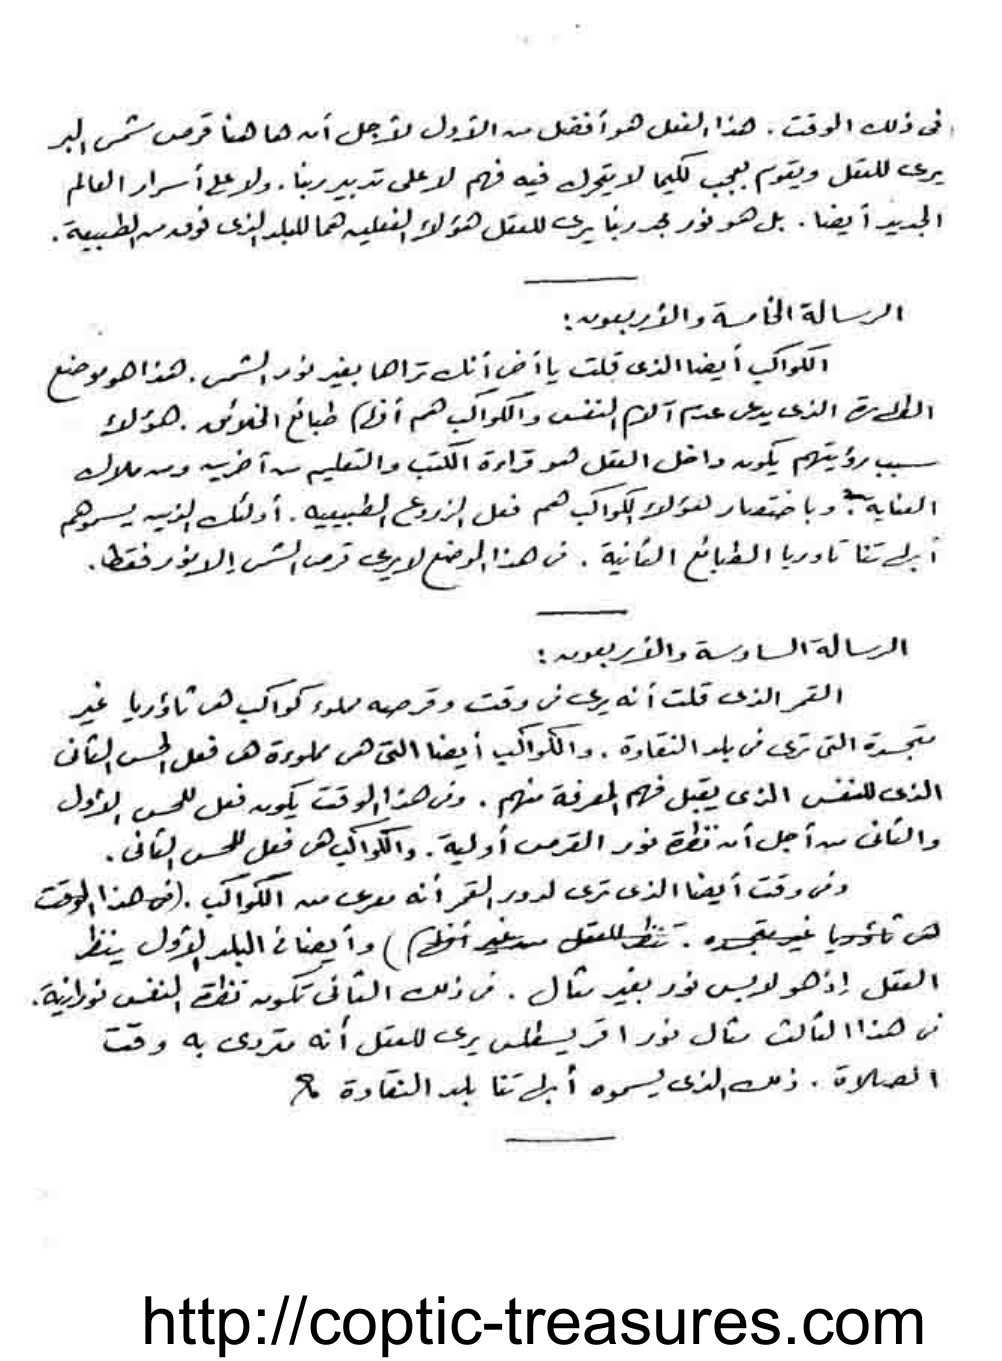 فى ذلك الوقت . هذا الفعل هو أفضل من الأول لأجل أن ها هنا قرص شمس البر
يرى للعقل ويقوم بعجب لكيما لا يتحرك فيه فهم لا على تدبير ربنا . ولا على أسرار العالم
الجديد أيضا . بل هو نور مجد ربنا يرى للعقل هؤلاء الفعلين هما للبلد الذى فوق من الطبيعة .
الرسالة الخامسة والأربعون :
الكواكب أيضا الذى قلت يا أخى أنك تراها بغير نور الشمس . هذا هو موضع
الطهارة الذى يدعى عدم آلام النفس والكواكب هم أفهام طبائع الخلائق . هؤلاء
سبب رؤيتهم يكون داخل العقل هو قراءة الكتب والتعليم من آخرين ومن ملاك
العناية . وباختصار هؤلاء الكواكب هم فعل الزروع الطبيعيه . أولئك الذين يسموهم
أبهاتنا تاوريا الطبائع الثانية . فى هذا الموضع لا يرى قرص الشمس إلا نور فقط .
الرسالة السادسة والأربعون :
القمر الذى قلت أنه يرى فى وقت وقرصه مملوء كواكب هى ثاؤريا غير
متجسدة التى ترى فى بلد النقاوة . والكواكب أيضا التى هى مملوءة هى فعل الحس الثانى
الذى للنفس الذى يقبل فهم المعرفة منهم . وفى هذا الوقت يكون فعل للحس الأول
والثانى من أجل أن نظرة نور القرص أولية . والكواكب هى فعل للحس الثانى .
وفى وقت أيضا الذى ترى لدور القمر أنه معرى من الكواكب . ( فى هذا الوقت
هى ثاؤريا غير متجسده . تنظر للعقل من غير أفهام ) وأيضا فى البلد الأول ينظر
العقل إذ هو لابس نور بغير مثال . فى ذلك الثانى تكون نظرة النفس نورانية .
فى هذا الثالث مثال نور اقريسطلس يرى للعقل أنه متردى به وقت
الصلاة . ذلك الذى يسموه أبهاتنا بلد النقاوة
http://coptic-treasures.com